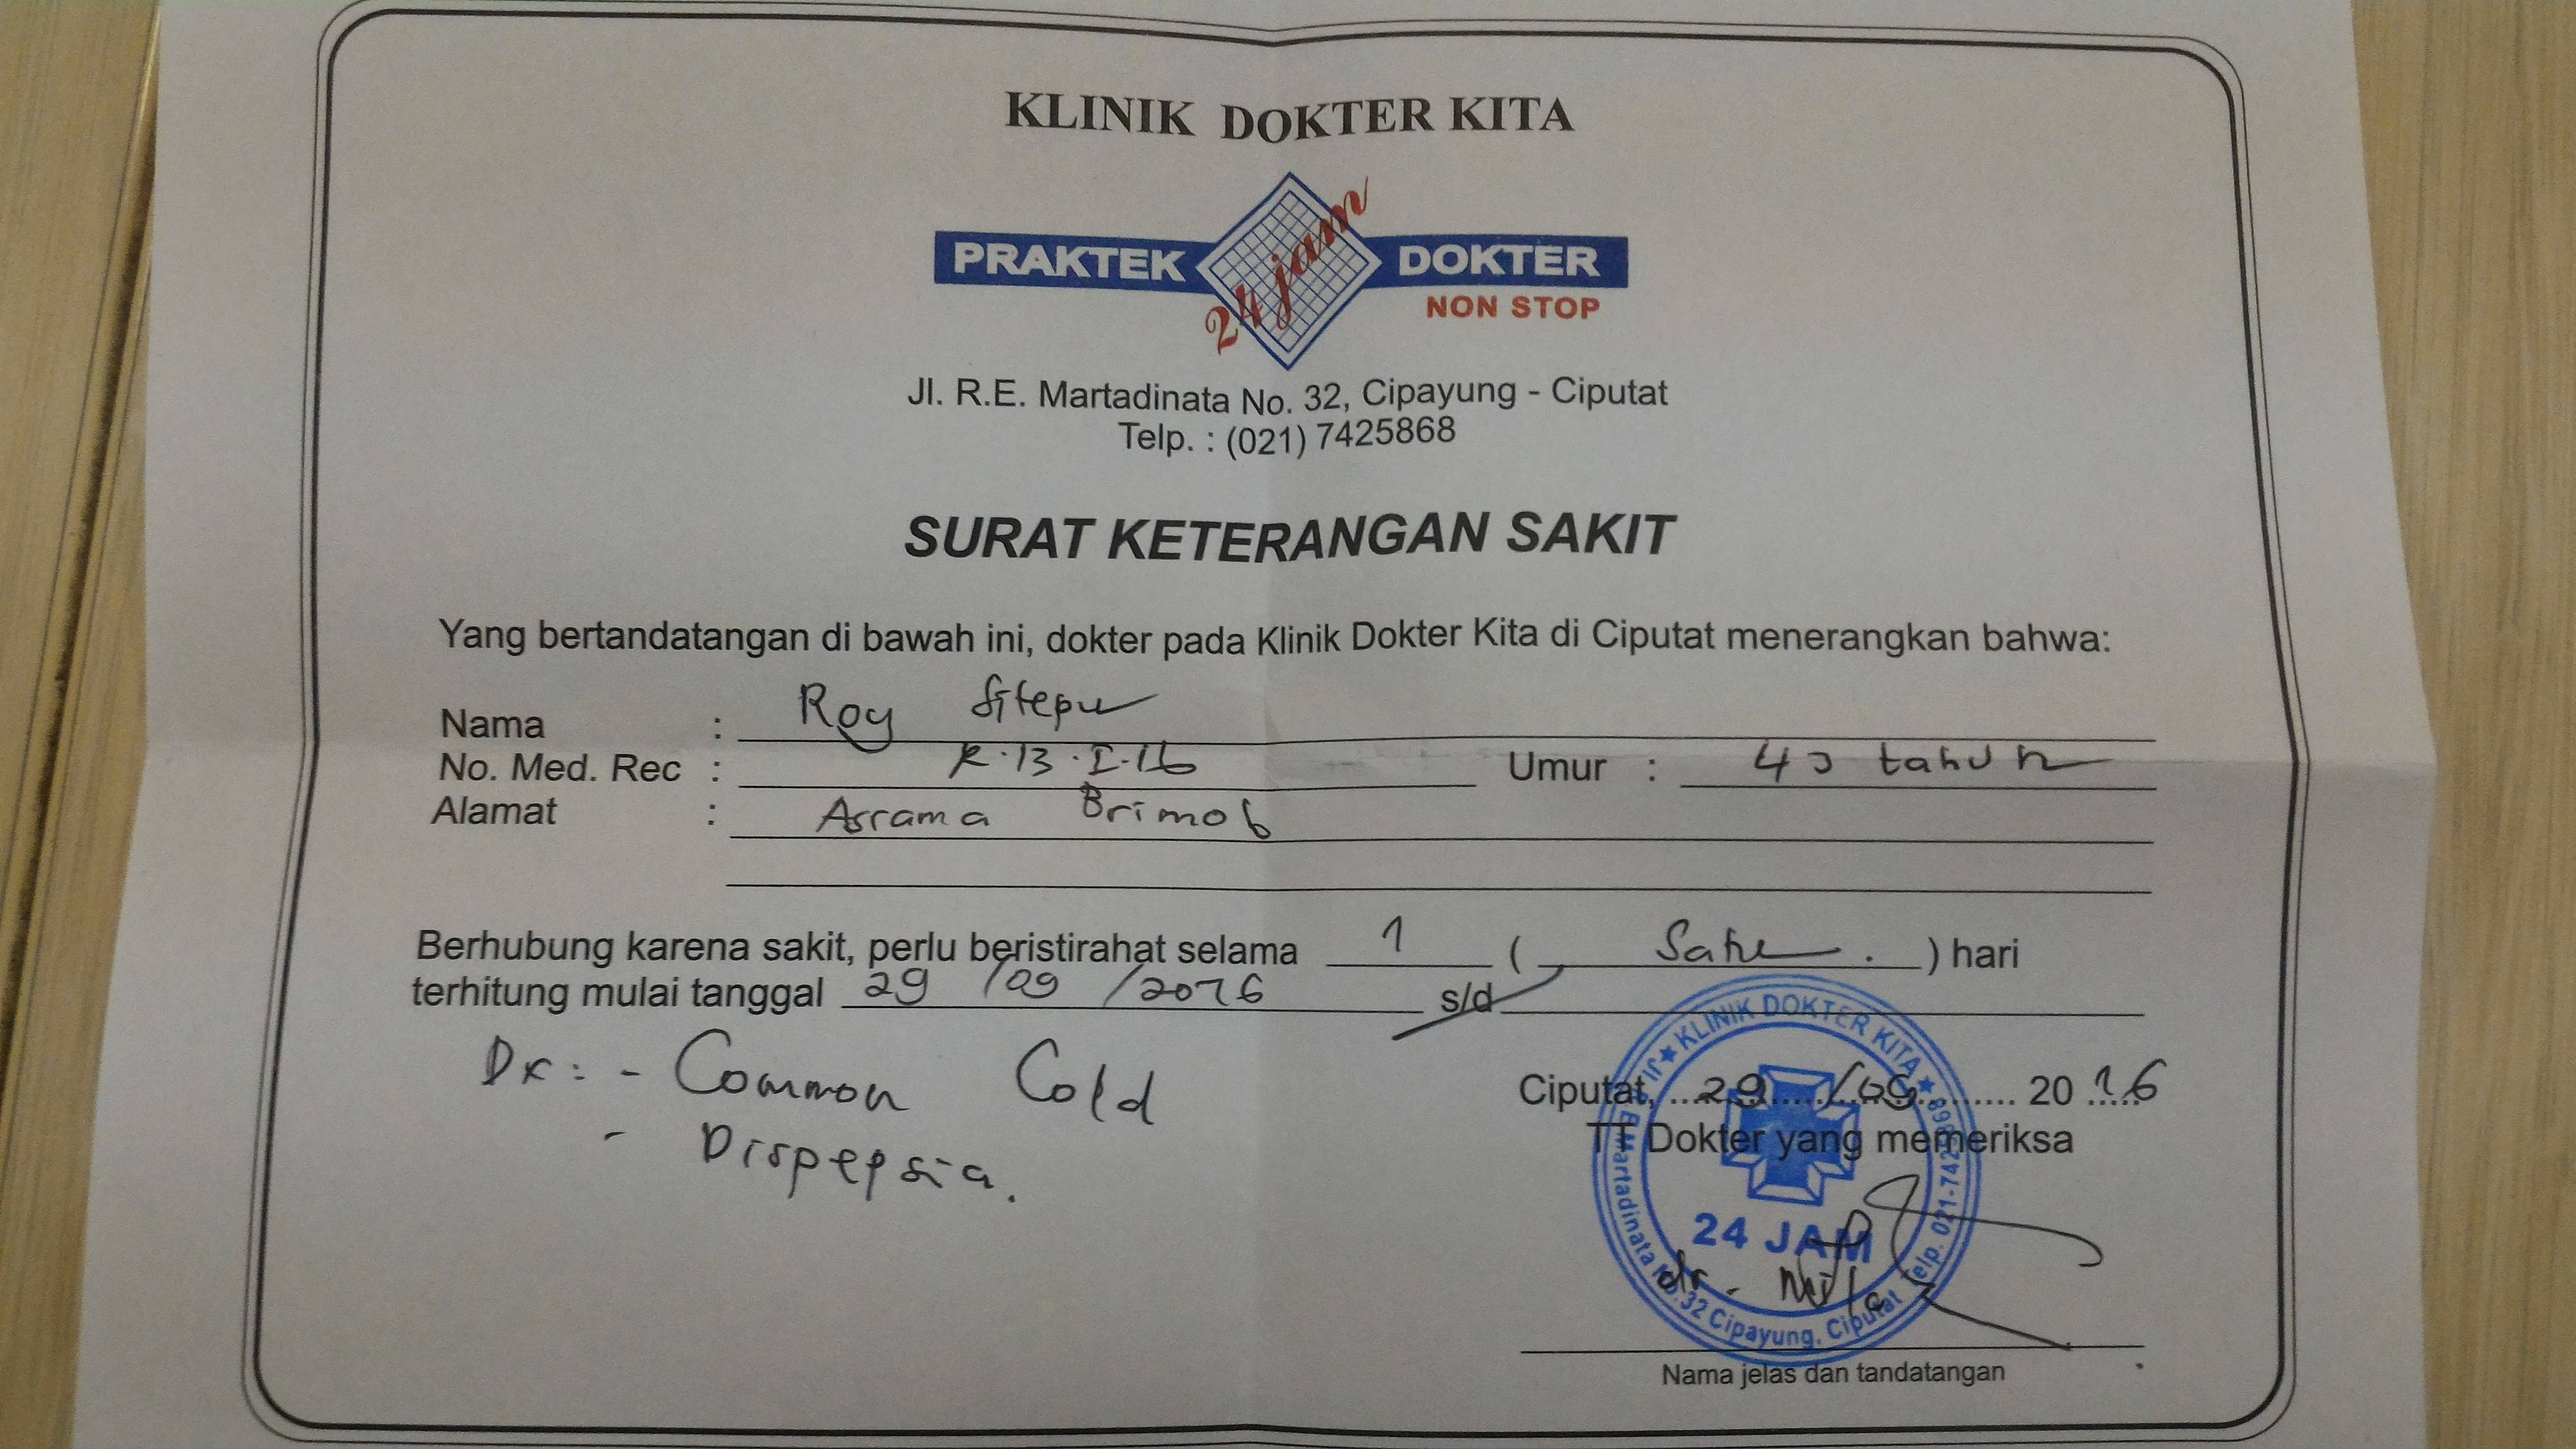 KLINIK DOKTER KITA
PRAKTEK 24 jam DOKTER
NON STOP
Jl. R.E. Martadinata No. 32, Cipayung - Ciputat
Telp. : (021) 7425868
SURAT KETERANGAN SAKIT
Yang bertandatangan di bawah ini, dokter pada Klinik Dokter Kita di Ciputat menerangkan bahwa:
Nama : Roy Sitepu
No. Med. Rec : R.13.I.16 Umur : tahun
Alamat : Asrama Brimob
Berhubung karena sakit, perlu beristirahat selama 1 ( Satu . ) hari
terhitung mulai tanggal 29 /09 /2016 s/d
Dx : - Common Cold
- Dispepsia.
Ciputat, 29 /09 2016
TT Dokter yang memeriksa
KLINIK DOKTER KITA
24 JAM
Jl. R.E Martadinata No.32 Cipayung, Ciputat Telp. 021-7425868
dr.
Nama jelas dan tandatangan